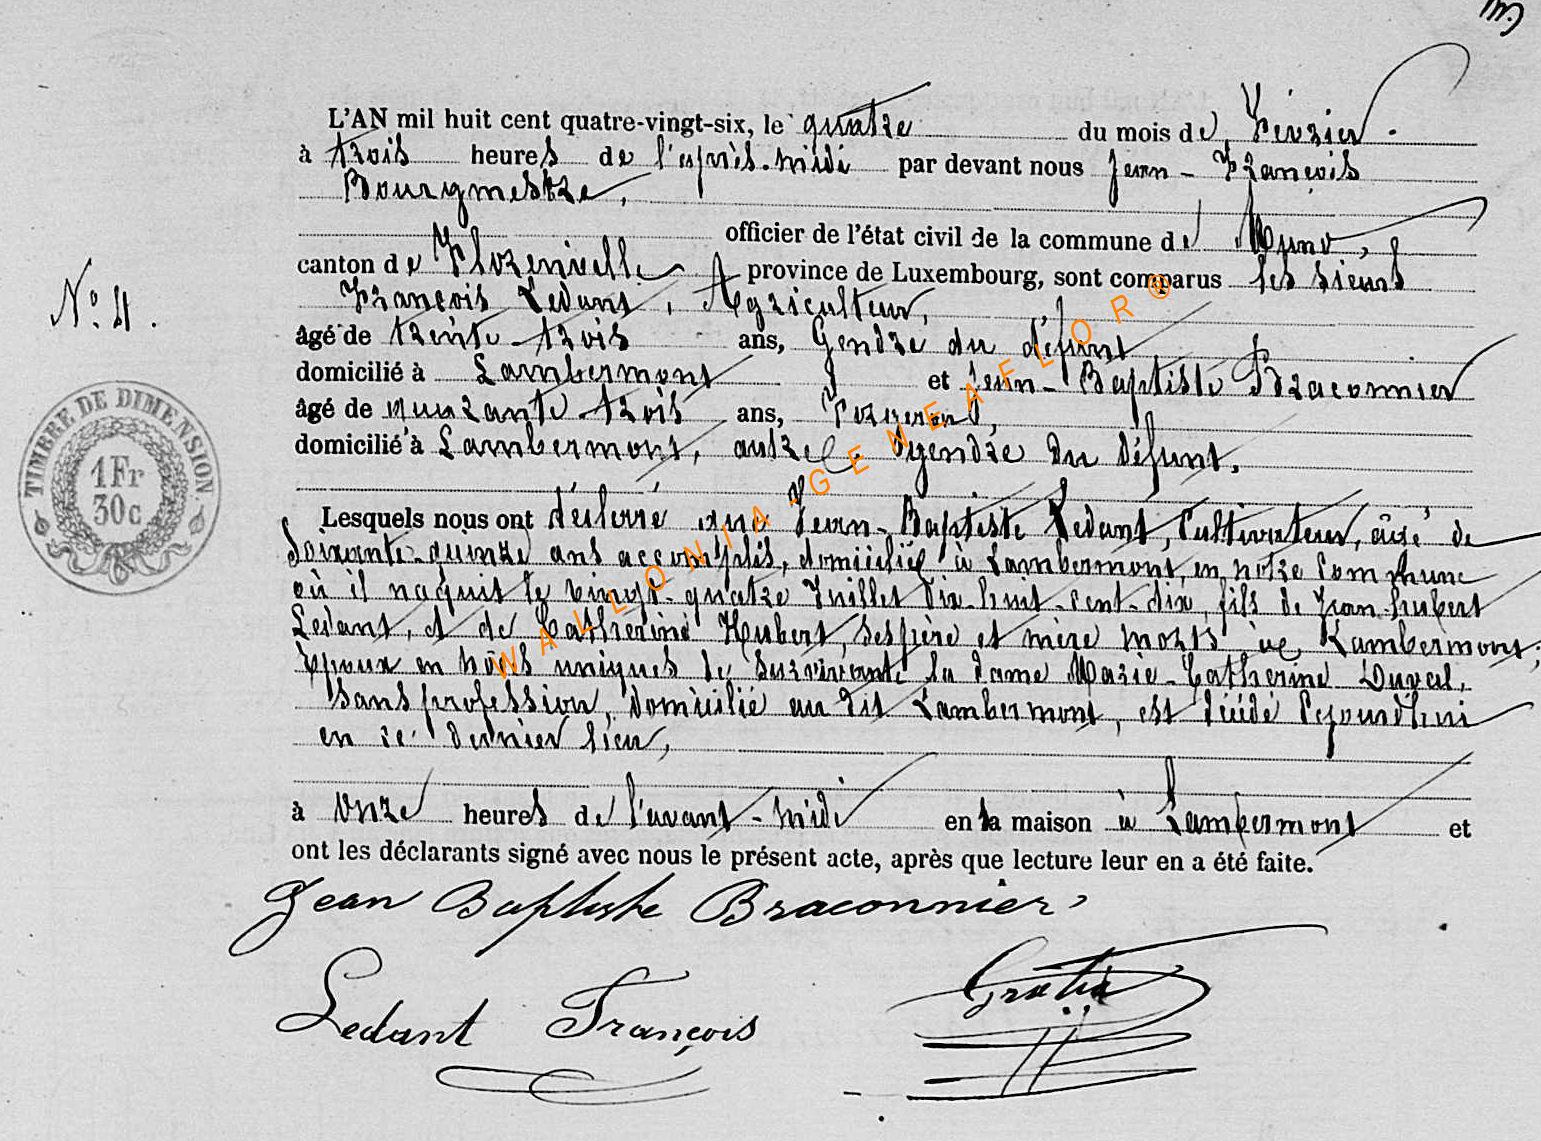 N° 4.
TIMBRE DE DIMENSION
1 Fr
30c
L'AN mil huit cent quatre-vingt-six, le quatre du mois de Février.
à trois heures de l'après-midi par devant nous Jean-François
Bourgmestre,
officier de l'état civil de la commune de Muno,
canton de Florenville province de Luxembourg, sont comparus les sieurs
François Ledant, Agriculteur,
âgé de trente-trois ans, Gendre du défunt
domicilié à Lambermont et Jean-Baptiste Braconnier
âgé de quarante-trois ans,
domicilié à Lambermont, autre gendre du défunt.
Lesquels nous ont déclaré que Jean-Baptiste Ledant, Cultivateur, âgé de
soixante-quinze ans accomplis, domicilié à Lambermont, en notre Commune
où il naquit le vingt-quatre Juillet dix-huit-cent-dix, fils de Jean-Hubert
Ledant, et de Catherine Hubert, ses père et mère morts Lambermont;
époux en nôces uniques de survivante la dame Marie-Catherine Duval,
sans profession, domicilié au dit Lambermont, est décédé Cejourd'hui
en ce dernier lieu,
à onze heures de l'avant-midi en sa maison à Lambermont et
ont les déclarants signé avec nous le présent acte, après que lecture leur en a été faite.
Jean Baptiste Braconnier
Ledant François
WALLONIA-GENEAFLOR®